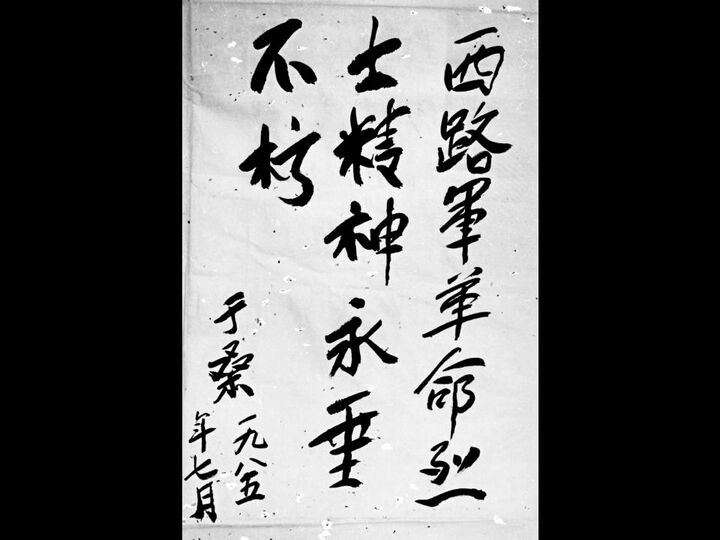 西路軍革命烈
士精神永垂
不朽
于桑
一九八五
年七月